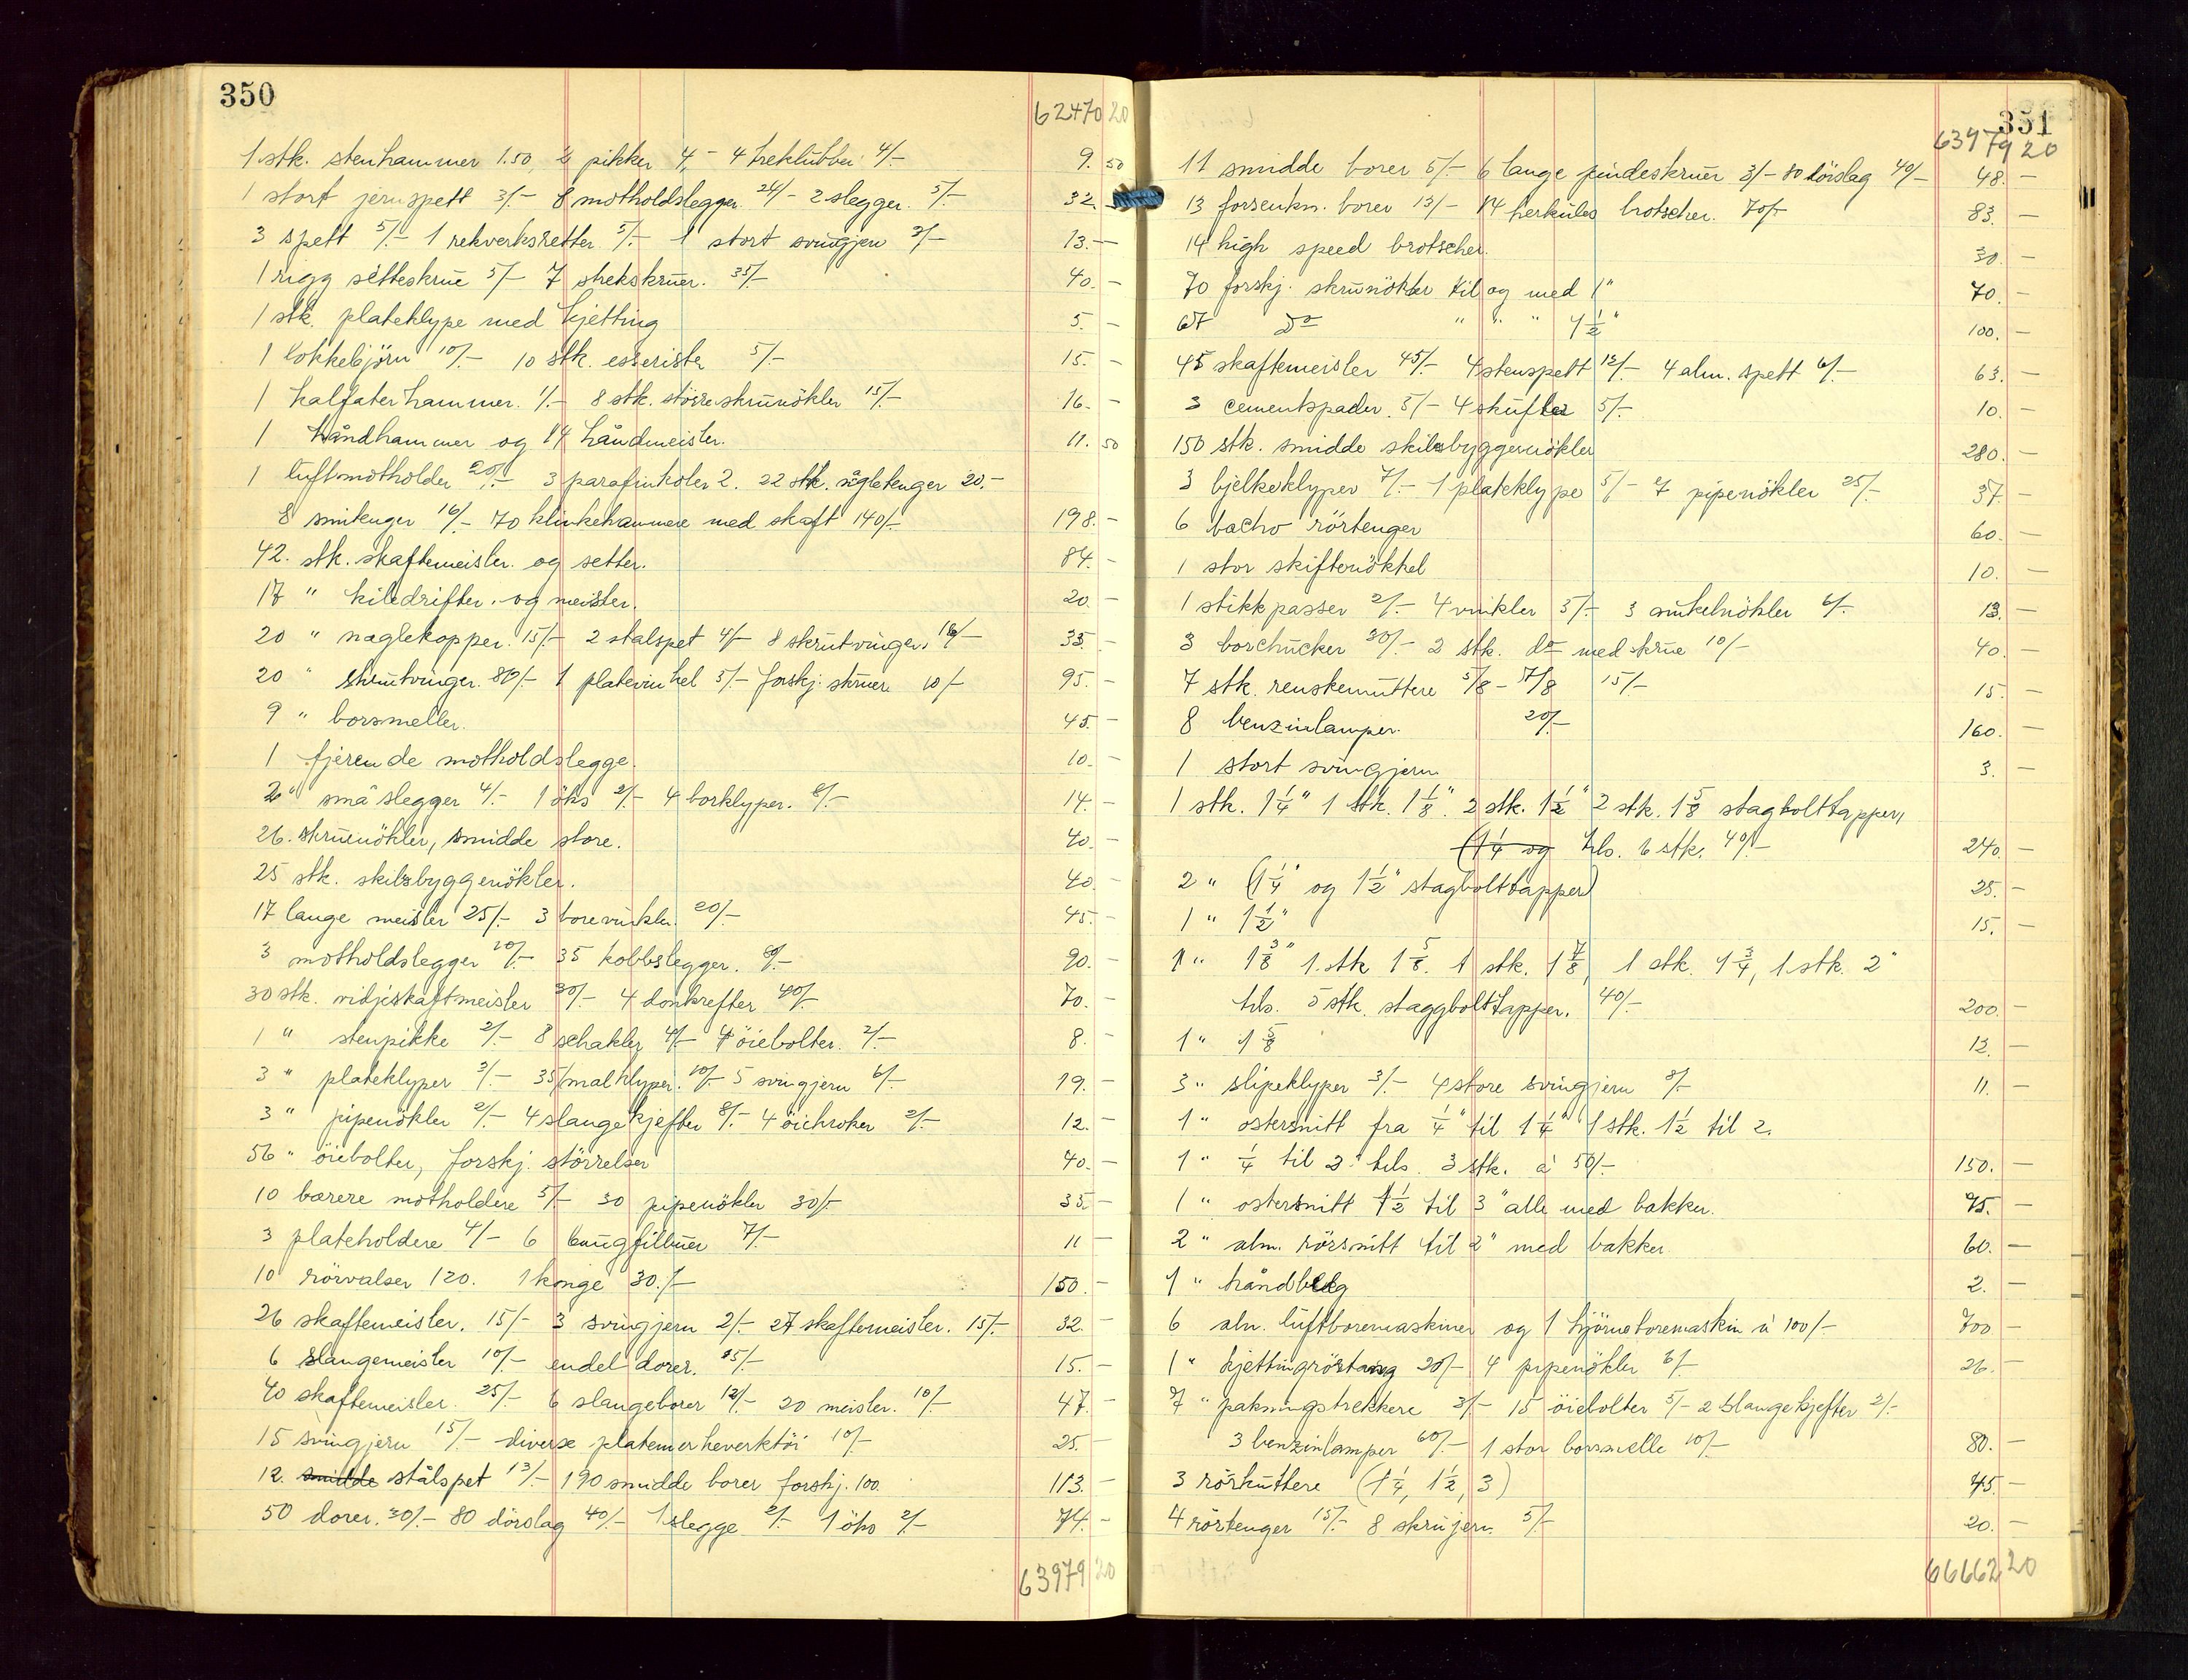 350
62470 20
1 stk. stenhammer 1.50, 2 pikker 4,- 4 treklubber 4/- 9. 50
1 stort jernspett 3/- 8 motholdslegger 24/- 2 slegger. 5/- 32. -
3 spett 5/- 1 rekverksretter 5/- 1 stort svingjern 3/- 13. -
1 rigg setteskrue 5/- 7 strekskruer. 35/- 40. -
1 stk. plateklype med kjetting 5. -
1 lokkebjörn 10/- 10 stk. esserister 5/- 15. -
1 kalfaterhammer. 1/- 8 stk. större skrunökler 15/- 16. -
1 håndhammer og 14 håndmeisler. 11. 50
1 luftmotholder 20/- 3 parafinkoler 2. 22 stk. nagletenger 20.-
8 smitenger 16/- 70 klinkehammere med skaft 140/- 198. -
42. stk. skaftemeisler. og setter. 84. -
17 " kiledrifter. og meisler. 20. -
20 " naglekopper. 15/- 2 stalspet 4/- 8 skrutvinger. 16/- 35. -
20 " skrutvinger. 80/- 1 platevinkel 5/- forskj. skruer 10/- 95. -
9 " borsmeller. 45. -
1 fjerende motholdslegge. 10. -
2 " små slegger 4/- 1 öks 2/- 4 borklyper. 8/- 14. -
26. skruenökler, smidde store. 40. -
25 stk. skibsbyggenökler. 40. -
17 lange meisler 25/- 3 borevinkler. 20/- 45. -
3 motholdslegger 10/- 35 kobbslegger. 90. -
30 stk. vidjeskaftmeisler 30/- 4 donkrefter 40/- 70. -
1 " stenpikke 2/- 8 schakler 4/- 4 öiebolter. 2/- 8. -
3 " plateklyper 3/- 35 smalklyper. 10/- 5 svingjern 6/- 19. -
3 " pipenökler 2/- 4 slangekjefter 8/- 4 öiekroker 2/- 12. -
56 " öiebolter, forskj. störrelser 40. -
10 bærere motholdere 5/- 30 pipenökler 30/- 35. -
3 plateholdere 4/- 6 7/- 11 -
10 rörvalser 120. 1 konge 30./- 150. -
26 skaftemeisler. 15/- 3 svingjern 2/- 27 skaftemeisler. 15/- 32. -
6 slangemeisler 10/- endel dorer. 5/- 15. -
40 skaftemeisler. 25/- 6 slangeborer 12/- 20 meisler. 10/- 47. -
15 svingjern 15/- diverse platemerkeverktöi 10/- 25. -
12. smidde stålspet 13/- 190 smidde borer forskj. 100. 113. -
50 dorer. 30/- 80 dörslag 40/- 1 slegge 2/- 1 öks 2/- 74. -
63979 20
351
63979 20
11 smidde borer 5/- 6 lange pindeskruer 3/- 80 dörslag 40/- 48. -
13 forsenkn. borer 13/- 14 herkules brotscher. 70/- 83. -
14 high speed brotscher. 30. -
70 forskj. skrunökler til og med 1" 70. -
67 Do " " " 4 1/2" 100. -
45 skaftemeisler 45/- 4 stenspett 12/- 4 alm. spett 6/- 63. -
3 cementspader. 5/- 4 skufler 5/- 10. -
150 stk. smidde skibsbyggenökler 280. -
3 bjelkeklyper 7/- 1 plateklype 5/- 7 pipenökler 25/- 37. -
6 bacho rörtenger 60. -
1 stor skiftenökkel 10. -
1 stikkpasser 2/- 4 vinkler 5/- 3 vinkelnökler 6/- 13. -
3 borchucker 30/- 2 stk. do med skrue 10/- 40. -
7 stk. renskemuttere 5/8 - 7/8 15/- 15. -
8 benzinlamper. 20/- 160. -
1 stort svingjern 3. -
1 stk. 1 1/4" 1 stk. 1 1/8". 2 stk. 1 1/2" 2 stk. 1 5/8 stagbolttapper,
(1 1/4 og tils. 6 stk. 40/- 240. -
2 " (1 1/4" og 1 1/2" stagbolttapper) 25. -
1 " 1 1/2" 15. -
1 " 1 3/8" 1. stk 1 5/8. 1 stk. 1 7/8, 1 stk. 1 3/4, 1 stk. 2"
tils. 5 stk. staggbolttapper. 40/- 200. -
1 " 1 5/8 12. -
3 " slipeklyper 3/- 4 store svingjern 8/- 11. -
1 " ostersnitt fra 1/4" til 1 1/4" 1 stk. 1 1/2 til 2.
1 " 1/4 til 2." tils. 3 stk. à 50/- 150. -
1 " ostersnitt 1 1/2 til 3" alle med bakker. 75. -
2 " alm. rörsnitt til 2" med bakker 60. -
1 " håndbelg 2. -
6 alm. luftboremaskiner og 1 hjörneboremaskin à 100/- 700 -
1 " kjettingrörtang 20/- 4 pipenökler 6/- 26. -
7 " pakningstrekkere 3/- 15 öiebolter 5/- 2 slangekjefter 2/-
3 benzinlamper 60/- 1 stor borsmelle 10/- 80. -
3 rörkuttere (1 1/4, 1 1/2, 3) 45. -
4 rörtenger 15/- 8 skrujern. 5/- 20. -
66662 20